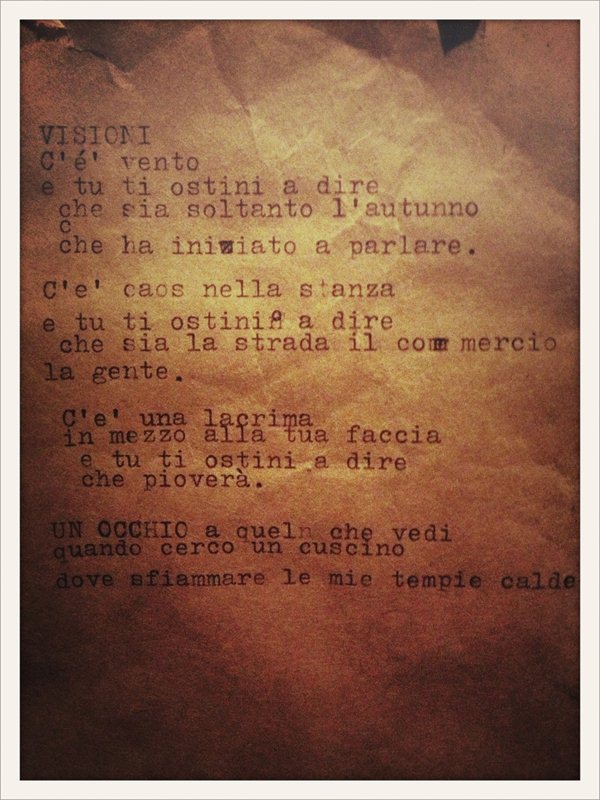 VISIONI
C'é' vento
e tu ti ostini a dire
che sia soltanto l'autunno
c
che ha iniziato a parlare.
C'e' caos nella stanza
e tu ti ostini a dire
che sia la strada il commercio
la gente.
C'e' una lacrima
in mezzo alla tua faccia
e tu ti ostini a dire
che pioverà.
UN OCCHIO a queln che vedi
quando cerco un cuscino
dove sfiammare le mie tempie calde